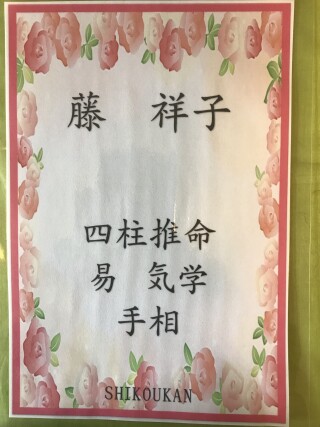 藤　祥子
四柱推命
易　気学
手相
SHIKOUKAN